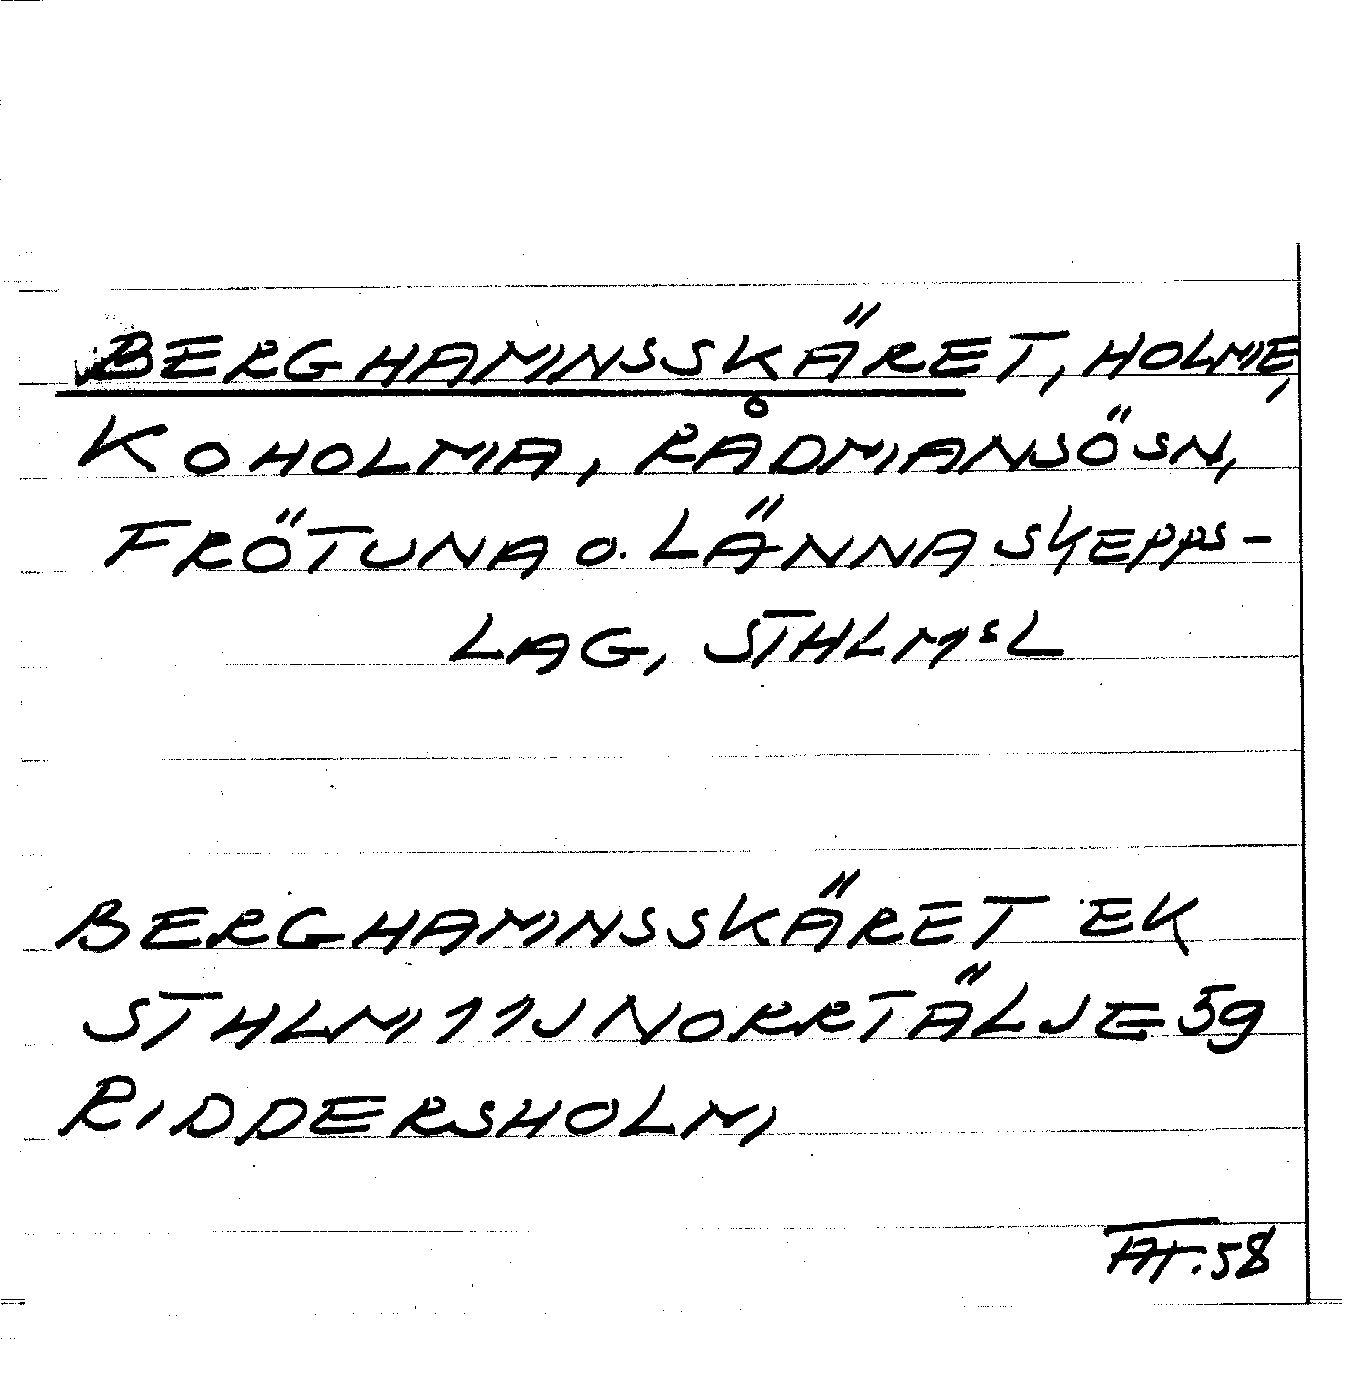 BERGHAMNSSKÄRET, HOLME,
KOHOLMA, RÅDMANSÖSN,
FRÖTUNA O. LÄNNA SKEPPS-
LAG, STHLMSL
BERGHAMNSSKÄRET EK
STHLM 11J NORRTÄLJE 59
RIDDERSHOLM
TAT.58